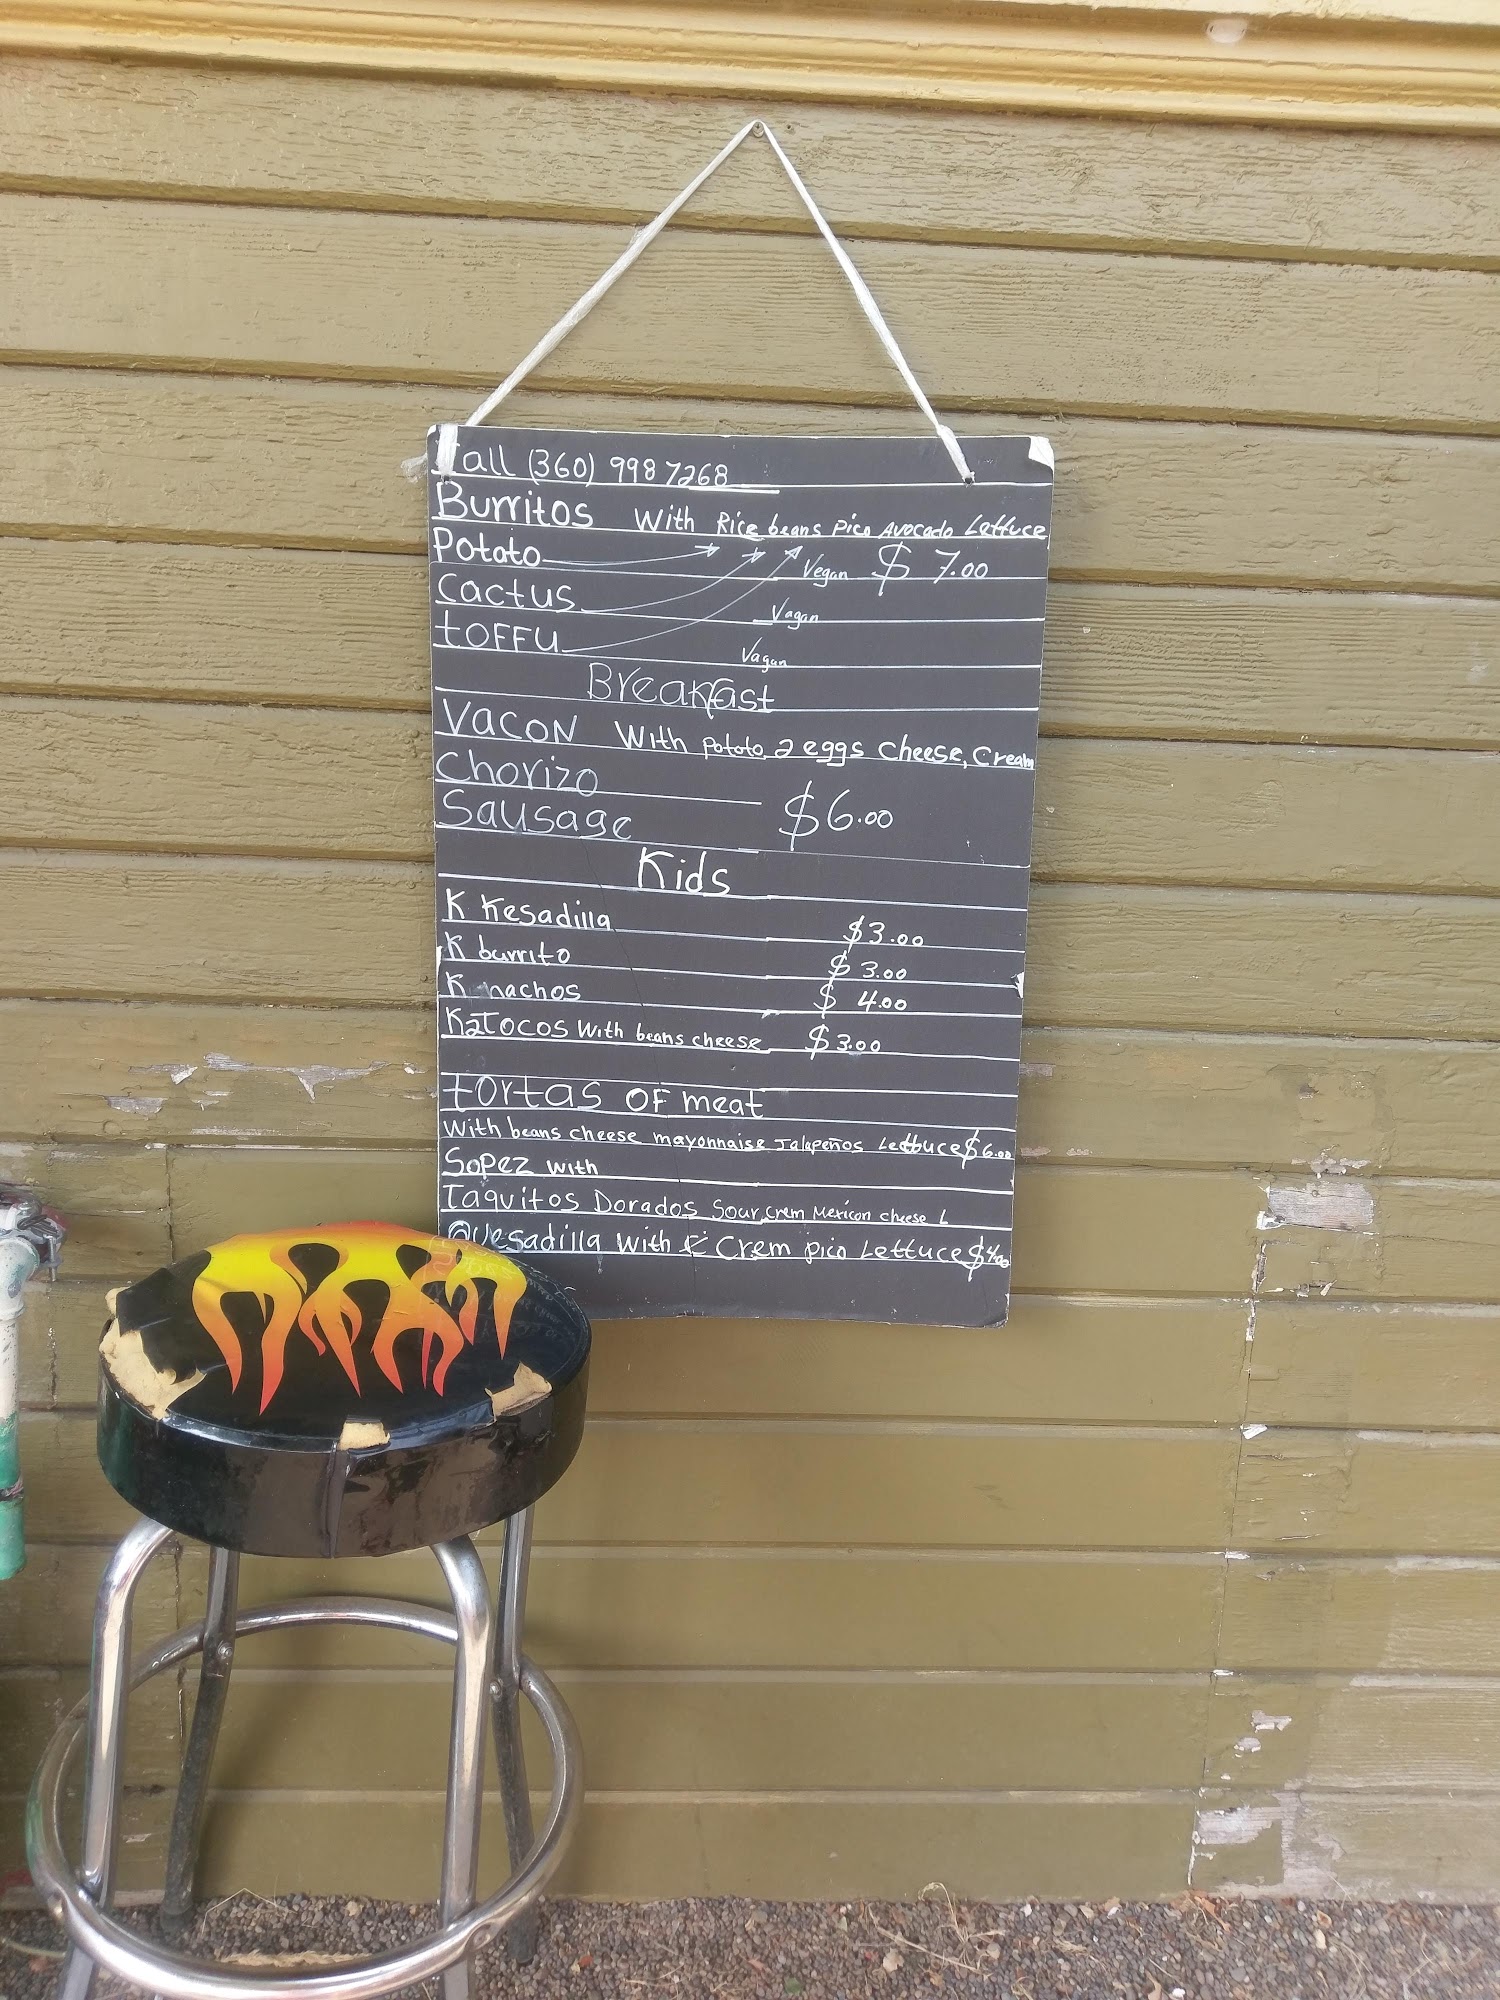 Call (360) 998 7268
Burritos With Rice beans Pico Avocado Lettuce
Potato Vegan $ 7.00
Cactus Vagan
tOFFU Vagan
Breakfast
VACON With Potato 2 eggs cheese, Cream
Chorizo
Sausage $6.00
Kids
K Kesadilla $3.00
K burrito $ 3.00
K nachos $ 4.00
K2Tocos With beans cheese $3.00
tortas OF meat
With beans cheese mayonnaise Jalapeños Lettuce $6.00
Sopez with
Taquitos Dorados Sour Crem Mexican cheese L
Quesadilla with Crem pico Lettuce $4.00